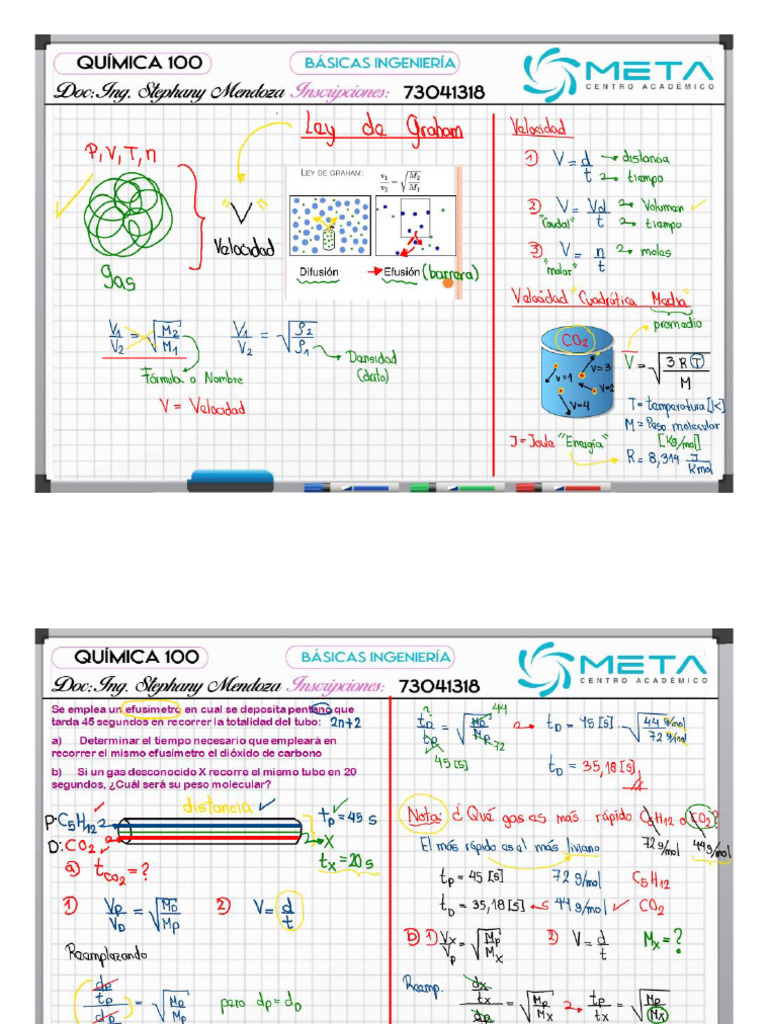 QUÍMICA 100
BÁSICAS INGENIERÍA
META
CENTRO ACADÉMICO
Doc: Ing. Stephany Mendoza Inscripciones: 73041318
Ley de Graham
P, V, T, n
gas
"V"
Velocidad
LEY DE GRAHAM:
v₁/v₂ = √(M₂/M₁)
Difusión
Efusión (barrera)
V₁/V₂ = √(M₂/M₁)
Fórmula o Nombre
V = Velocidad
V₁/V₂ = √(ρ₂/ρ₁)
Densidad
(dato)
Velocidad
1) V = d/t
distancia
tiempo
2) V = Vd/t
"Caudal"
Volumen
tiempo
3) V = n/t
"molar"
moles
tiempo
Velocidad Cuadrática Media
promedio
CO₂
V=1
V=3
V=2
V=4
V = √(3RT/M)
T = temperatura [K]
M = Peso molecular
[Kg/mol]
J = Joule "Energía"
R = 8,314 J/Kmol
QUÍMICA 100
BÁSICAS INGENIERÍA
META
CENTRO ACADÉMICO
Doc: Ing. Stephany Mendoza Inscripciones: 73041318
Se emplea un efusímetro en cual se deposita pentano que
tarda 45 segundos en recorrer la totalidad del tubo: 2n+2
a) Determinar el tiempo necesario que empleará en
recorrer el mismo efusímetro el dióxido de carbono
b) Si un gas desconocido X recorre el mismo tubo en 20
segundos, ¿Cuál será su peso molecular?
distancia
P: C₅H₁₂
D: CO₂
tp = 45 s
X
tx = 20 s
a) tCO₂ = ?
1) Vp/VD = √(MD/Mp)
2) V = d/t
Reemplazando
dp/tp = √(MD/Mp) pero dp = dD
tD/tp = √(MD/Mp)
44
72
45 [s]
tD = 45 [s] · √(44 g/mol / 72 g/mol)
tD = 35,18 [s]
Nota: ¿Qué gas es más rápido C₅H₁₂ o CO₂?
72 g/mol 44 g/mol
El más rápido es el más liviano
tp = 45 [s] 72 g/mol C₅H₁₂
tD = 35,18 [s] 44 g/mol CO₂
b) 1) Vx/Vp = √(Mp/Mx) 2) V = d/t Mx = ?
Reemp.
dx/tx / dp = √(Mp/Mx) tp/tx = √(Mp/Mx)